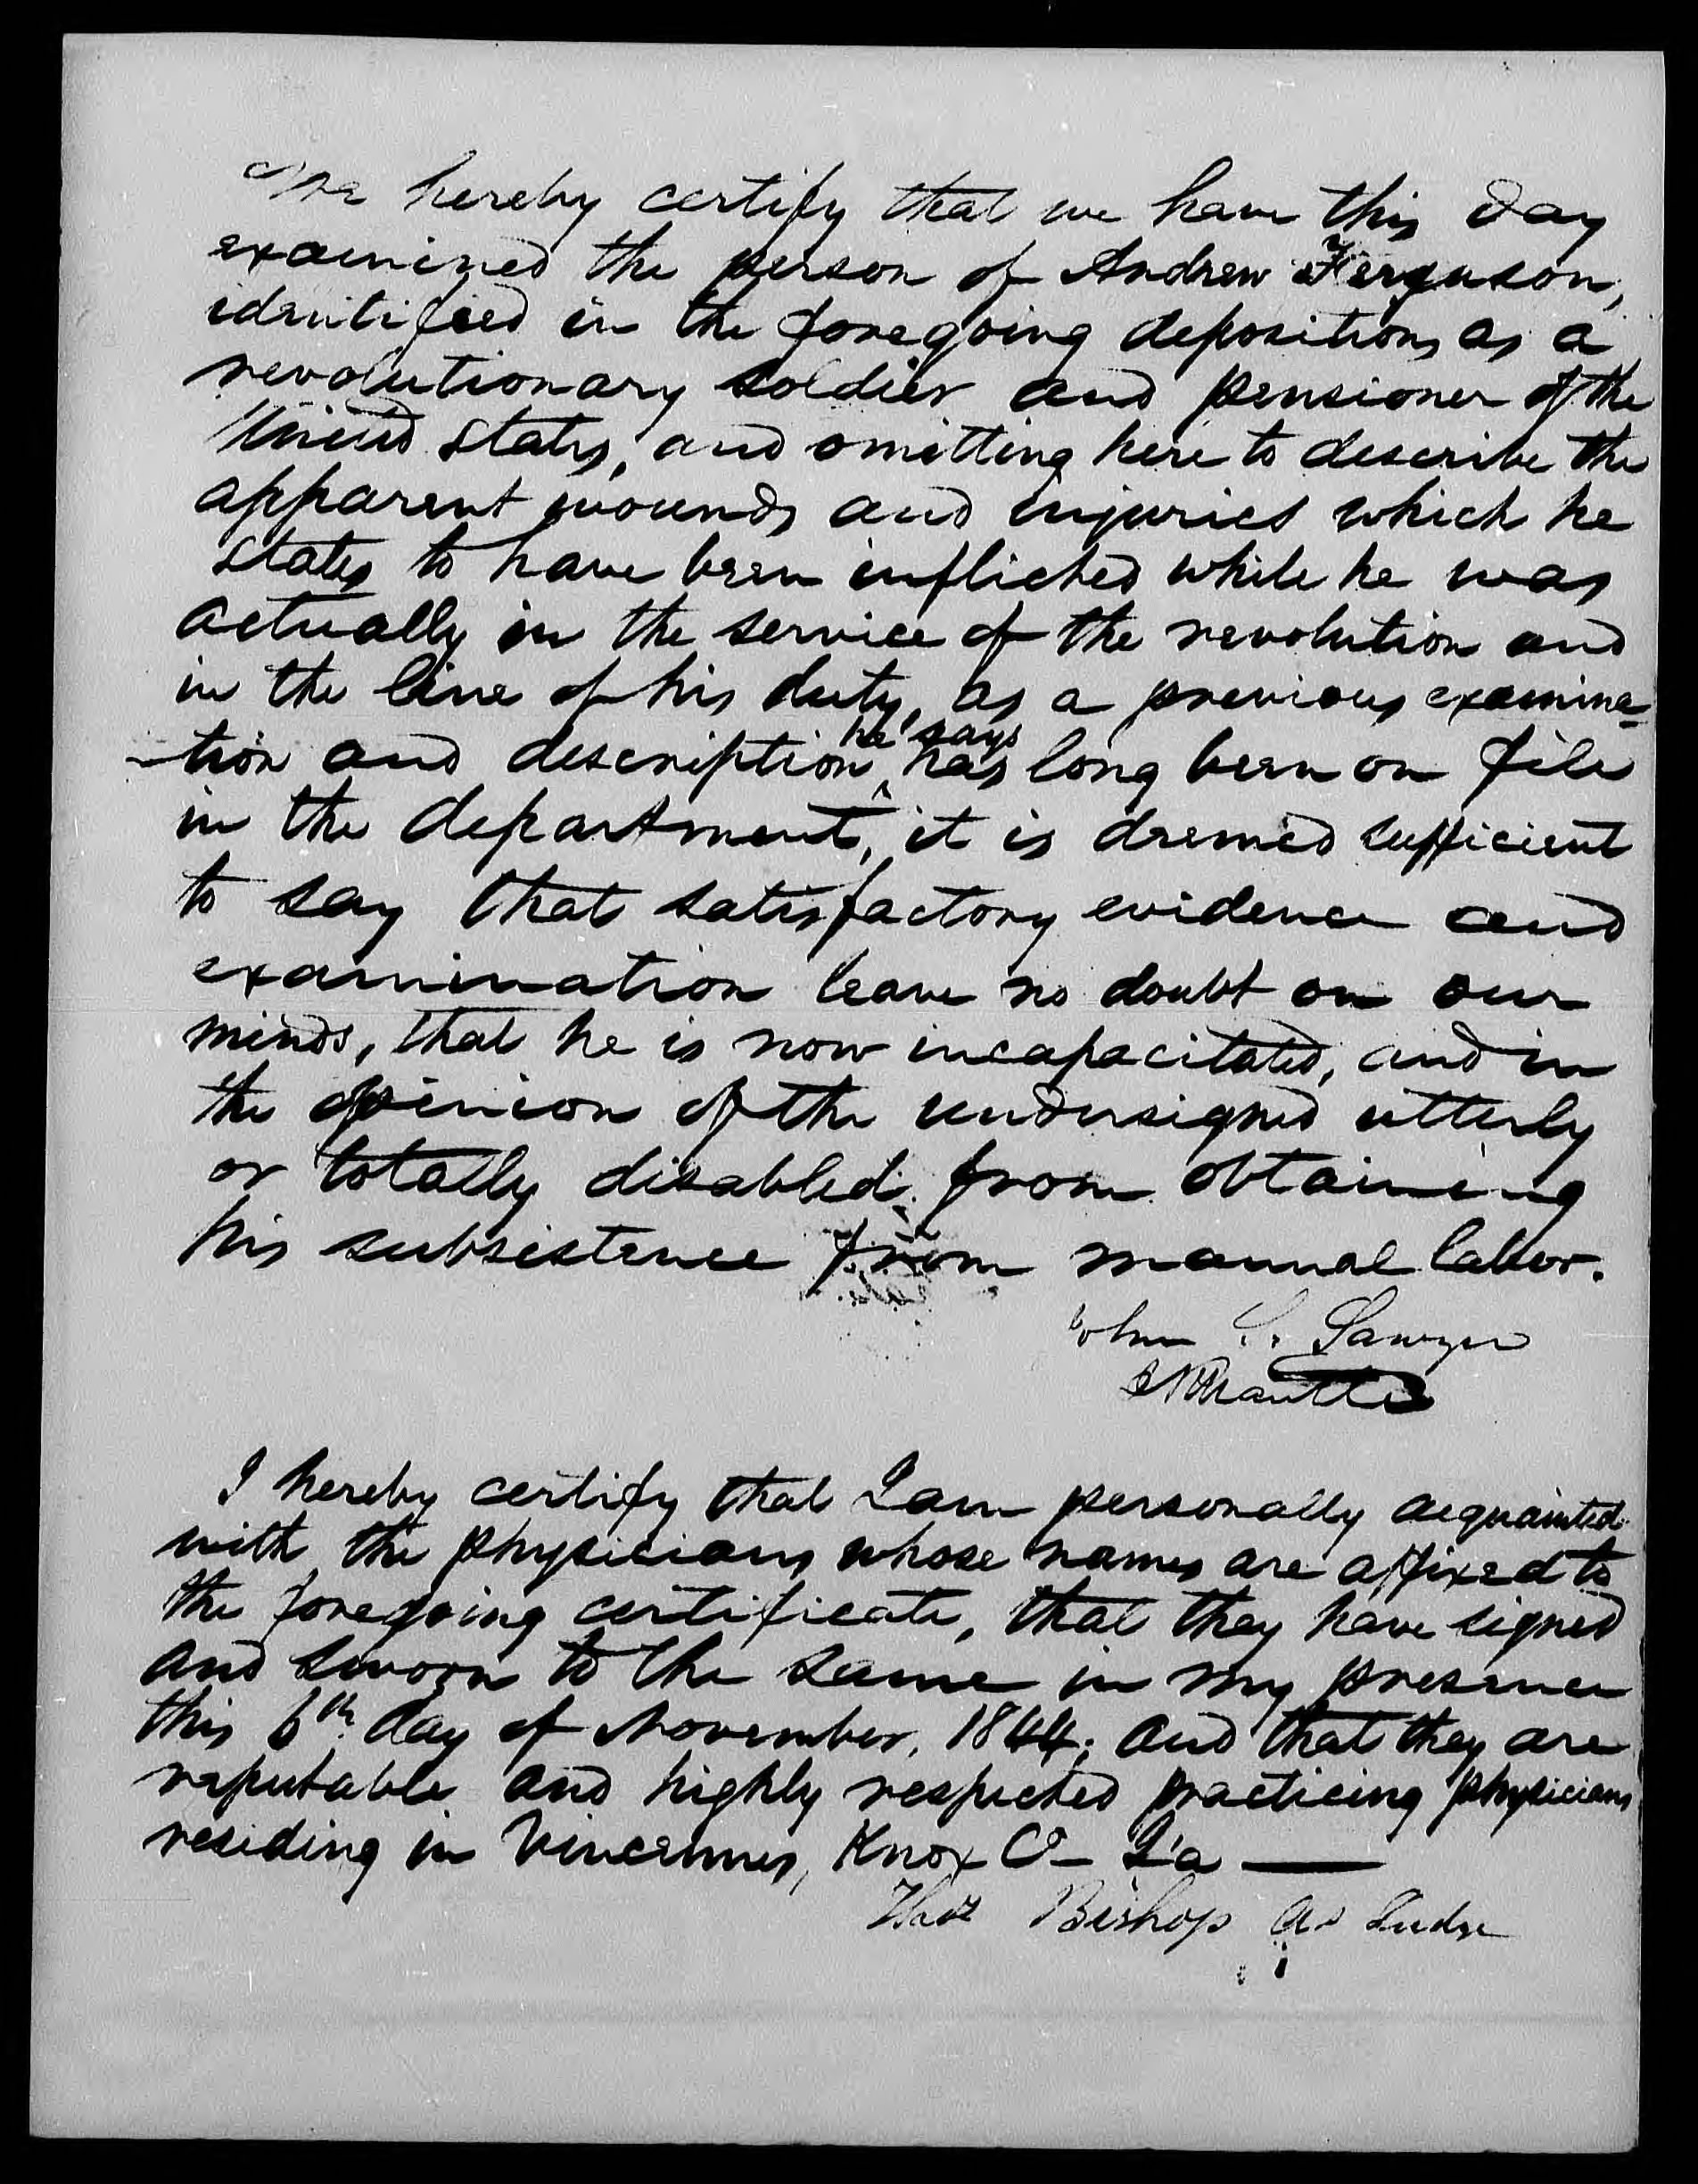 We hereby certify that we have this day
examined the person of Andrew Ferguson,
identified in the foregoing depositions as a
revolutionary soldier and pensioner of the
United States, and omitting here to describe the
apparent wounds and injuries which he
states to have been inflicted while he was
actually in the service of the revolution and
in the line of his duty, as a previous examina-
he says
-tion and description ^ has long been on file
in the department, it is deemed sufficient
to say that satisfactory evidence and
examination leave no doubt on our
minds, that he is now incapacitated, and in
the opinion of the undersigned utterly
or totally disabled from obtaining
his subsistence from manual labor.
John Sawyer
I hereby certify that I am personally acquainted
with the physicians whose names are affixed to
the foregoing certificate, that they have signed
and sworn to the same in my presence
this 6th day of November, 1844; and that they are
reputable and highly respected practicing physicians
residing in Vincennes, Knox Co - Ia —
Thos Bishop as Judge